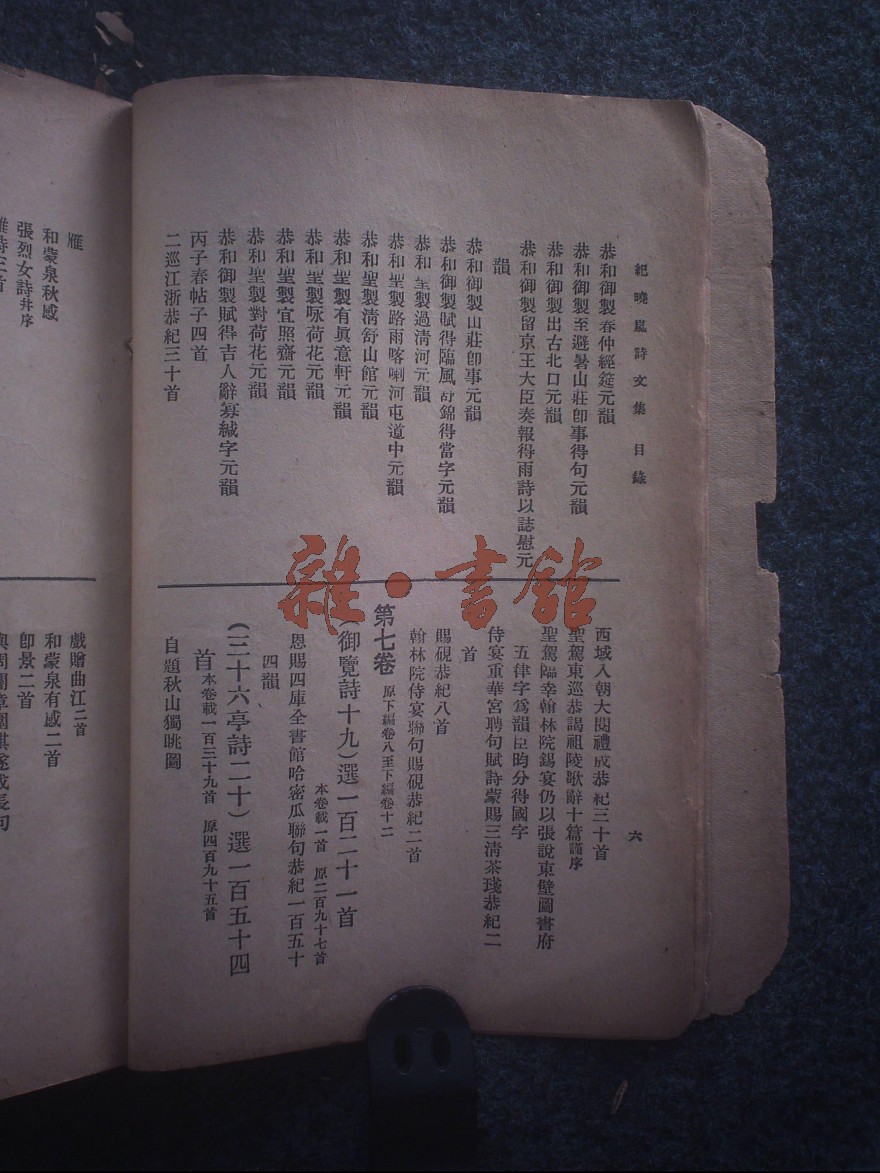 紀曉嵐詩文集 目錄
六
恭和御製春仲經筵元韻
恭和御製至避暑山莊卽事得句元韻
恭和御製出古北口元韻
恭和御製留京王大臣奏報得雨詩以誌慰元
韻
恭和御製山莊卽事元韻
恭和御製賦得臨風舒錦得當字元韻
恭和聖製過清河元韻
恭和聖製路雨喀喇河屯道中元韻
恭和聖製清舒山館元韻
恭和聖製有眞意軒元韻
恭和聖製咏荷花元韻
恭和聖製宜照齋元韻
恭和聖製對荷花元韻
恭和御製賦得吉人辭寡緘字元韻
丙子春帖子四首
二巡江浙恭紀三十首
西域入朝大閱禮成恭紀三十首
聖駕東巡恭謁祖陵歌辭十篇謹序
聖駕臨幸翰林院錫宴仍以張說東壁圖書府
五律字爲韻臣昀分得國字
侍宴重華宮聘句賦詩蒙賜三清茶琖恭紀二
首
賜硯恭紀八首
翰林院侍宴聯句賜硯恭紀二首
第七卷 原下編卷八至下編卷十二
(御覽詩十九)選一百二十一首
本卷載一首 原二百九十七首
恩賜四庫全書館哈密瓜聯句恭紀一百五十
四韻
(三十六亭詩二十)選一百五十四
首 本卷載一百三十九首 原四百九十五首
自題秋山獨眺圖
雁
和蒙泉秋感
張烈女詩并序
戲贈曲江三首
和蒙泉有感二首
卽景二首
雜・書館